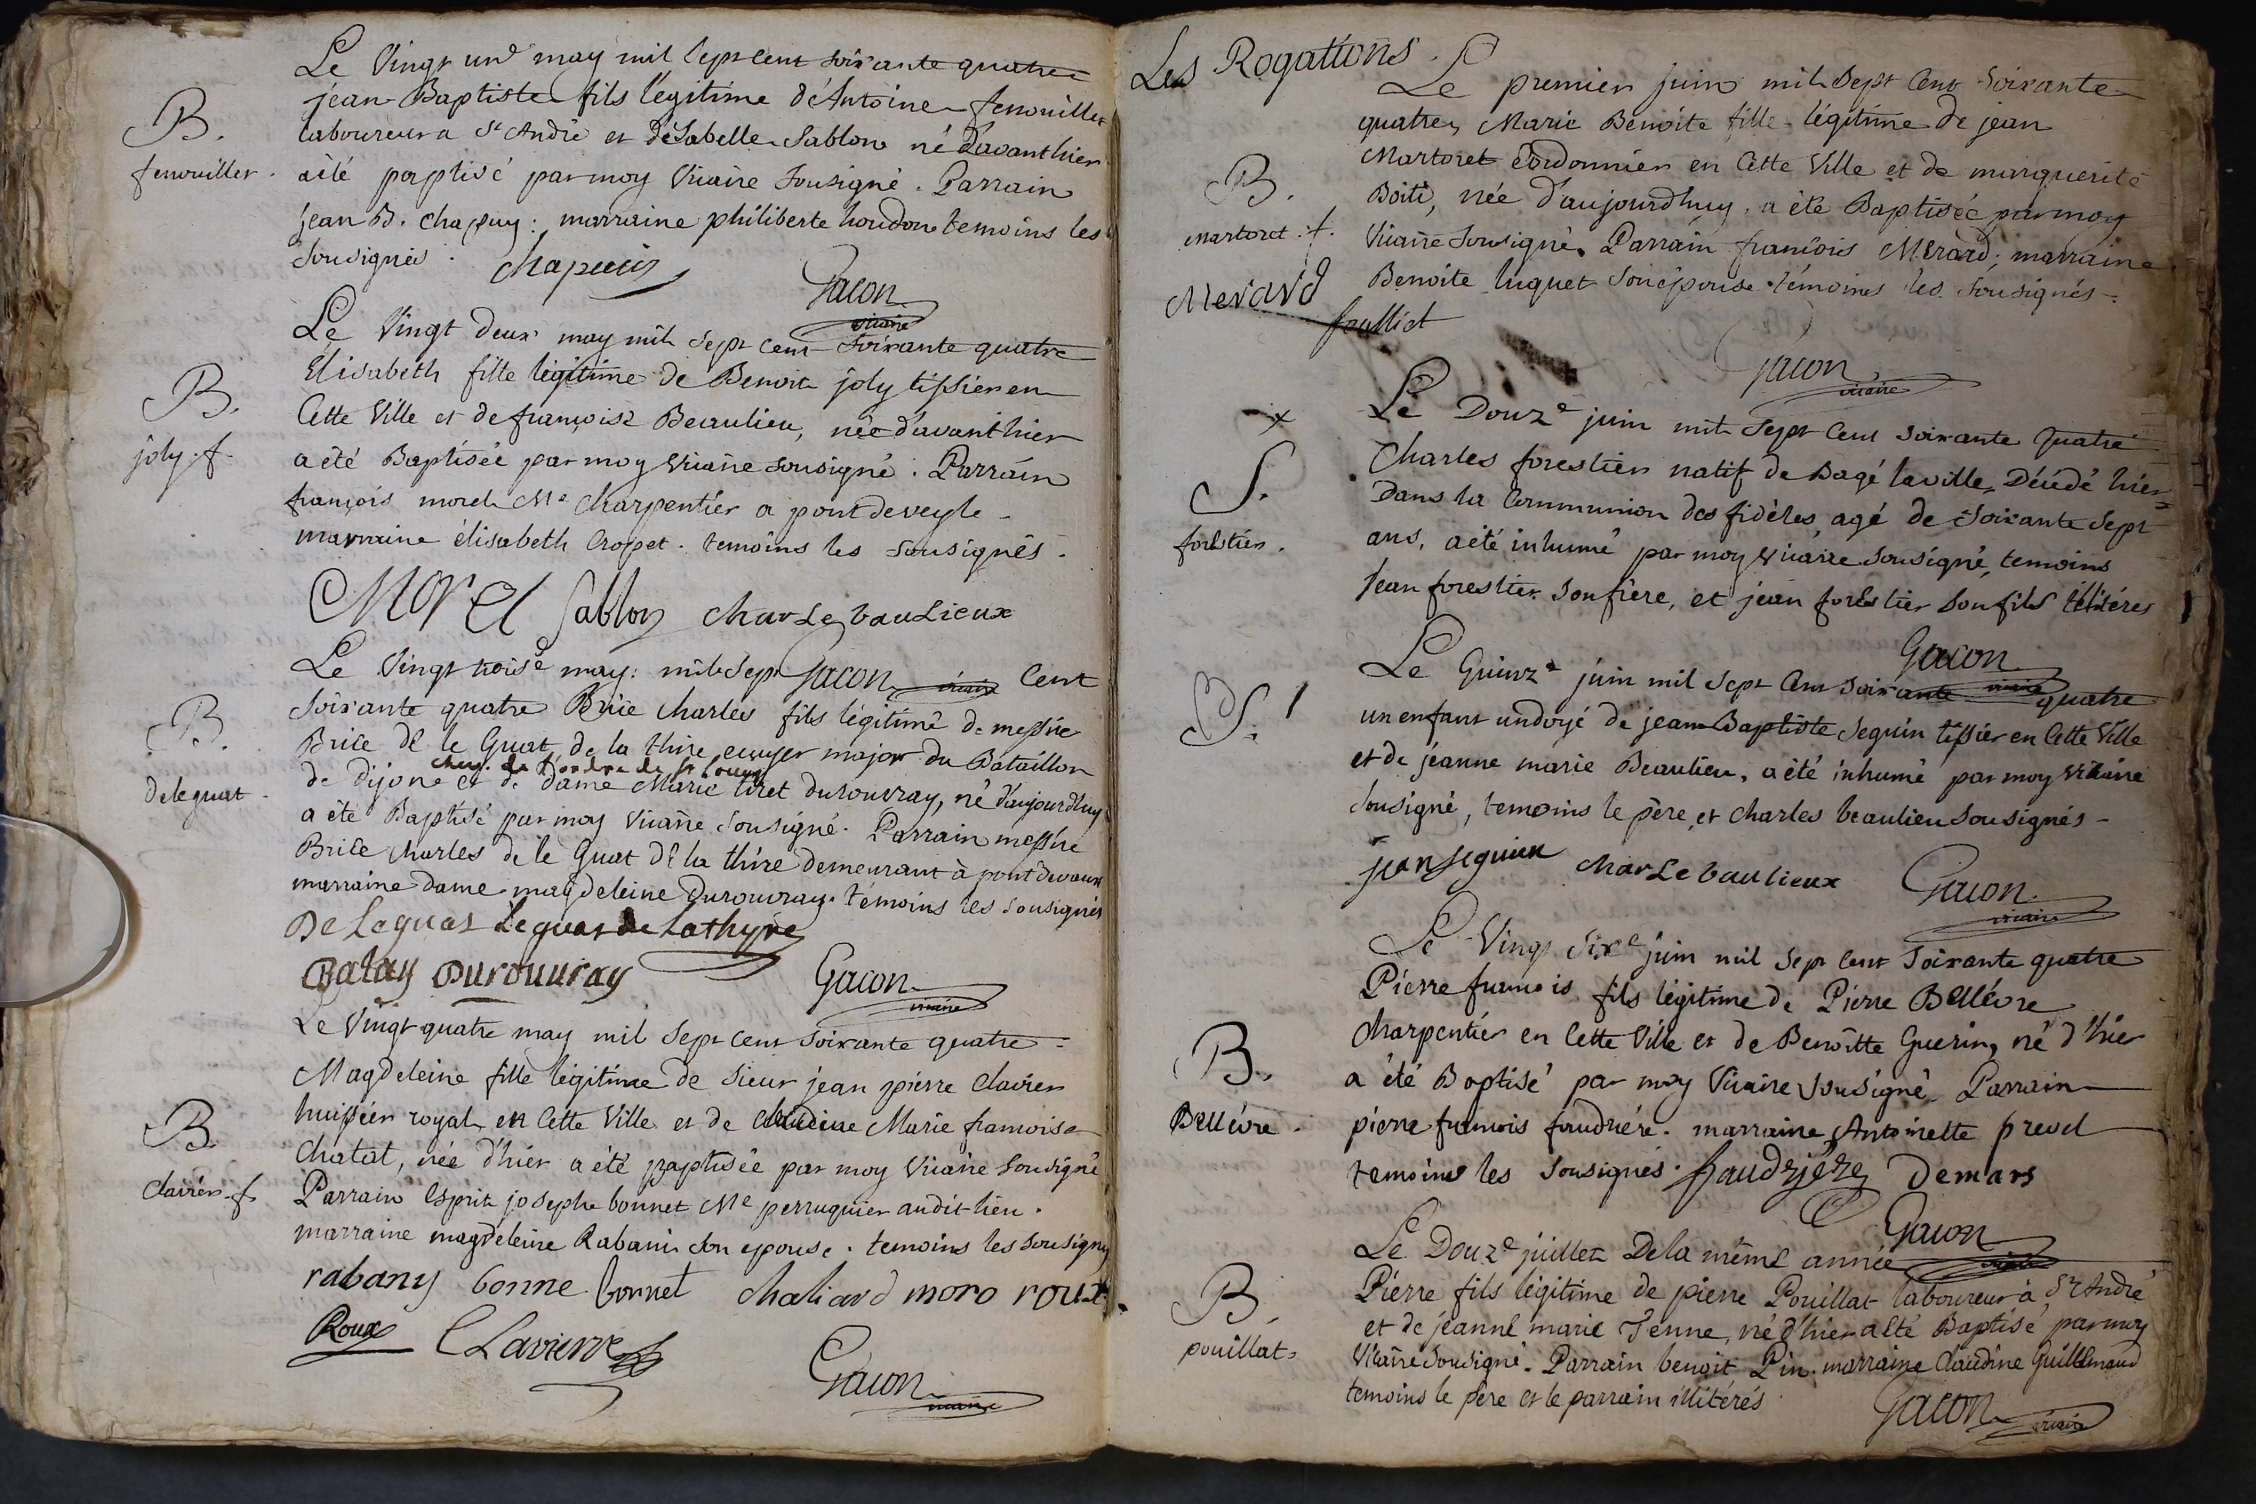 Le Vingt un^e may mil sept cent soixante quatre
jean-Baptiste fils légitime d'Antoine fenouillet
B. laboureur a S^t André et d'isabelle Sablon né d'avanthier
fenouillet. a été baptisé par moy Vicaire sousigné. Parrain
jean B. Chapuy: marraine philiberte houdon temoins les
sousignés. Chapuis
Gacon vicaire
Le Vingt deux may mil sept cent soixante quatre
Elisabeth fille légitime de Benoit joly tissier en
B. Cette Ville et de françoise Beaulieu, née d'avanthier
joly. f. a été Baptisée par moy Vicaire sousigné. Parrain
françois morel M^e Charpentier a pontdeveyle
marraine élisabeth Cropet. temoins les sousignés.
Morel Sablon charle bauLieux
Le Vingt trois^e may: mil sept Gacon vicaire Cent
B. soixante quatre Brice charles fils légitime de messire
Brice de le Guat de la thire ecuyer major du Bataillon
chev. de l'ordre de st Louys
delequat. de dijone et de dame Marie tiret durouvray, né d'aujourdhuy
a été Baptisé par moy Vicaire sousigné. Parrain messire
Brice charles de le Guat de la thire demeurant à pontdevaux
marraine dame magdeleine Durouvray. témoins les sousignés
De Leguat Leguat de Lathyre
Durouvray Gacon vicaire
Le Vingt quatre may mil sept cent soixante quatre
Magdeleine fille légitime de sieur jean pierre clavier
B. huissier royal en Cette Ville et de Claudine Marie francoise
Chatat, née d'hier a été Baptisée par moy Vicaire sousigné
clavier. f. Parrain Esprit joseph bonnet M^e perruquier audit lieu.
marraine magdeleine Rabani son epouse. temoins les sousignés
rabany bonne bonnet chaliard moro roux
Roux Clavier
Gacon vicaire
Les Rogations.
Le premier juin mil sept cent soixante
quatre, Marie Benoite fille légitime de jean
B. Martoret Cordonnier en Cette Ville et de marguerite
martoret. f. Boiti, née d'aujourdhuy, a été Baptisée par moy
Vicaire sousigné. Parrain francois Merard; marraine
Benoite luquet son épouse. témoins les sousignés.
Merard foulliet
Gacon vicaire
Le Douz^e juin mil sept cent soixante quatre
S. Charles forestier natif de Bagé la ville, Décédé hier
Dans la Communion des fidèles, agé de soixante sept
forestier. ans, a été inhumé par moy Vicaire sousigné, temoins
jean forestier son frère, et jean forestier son fils illitérés
Gacon vicaire
Le Quinz^e juin mil sept Cent soixante quatre
S. un enfant undoyé de jean-Baptiste Seguin tissier en Cette Ville
et de jeanne marie Beaulieu, a été inhumé par moy Vicaire
sousigné, temoins le père, et charles beaulieu sousignés
jean seguin charle baulieux Gacon vicaire
Le Vingt six^e juin mil sept cent soixante quatre
Pierre francois fils légitime de Pierre Bellévre
B. Charpentier en Cette Ville et de Benoitte Guerin, né d'hier
a été Baptisé par moy Vicaire sousigné Parrain
Bellévre. pierre francois faudrière. marraine Antoinette prevel
temoins les sousignés. faudrjere Demars
Gacon vicaire
Le Douz^e juillet De la même année
B. Pierre fils légitime de pierre Pouillat laboureur à S^t André
et de jeanne marie Tenne, né d'hier a été Baptisé par moy
pouillat. Vicaire sousigné. Parrain benoit Pin. marraine Claudine Guillemaud
temoins le père et le parrain illitérés
Gacon vicaire